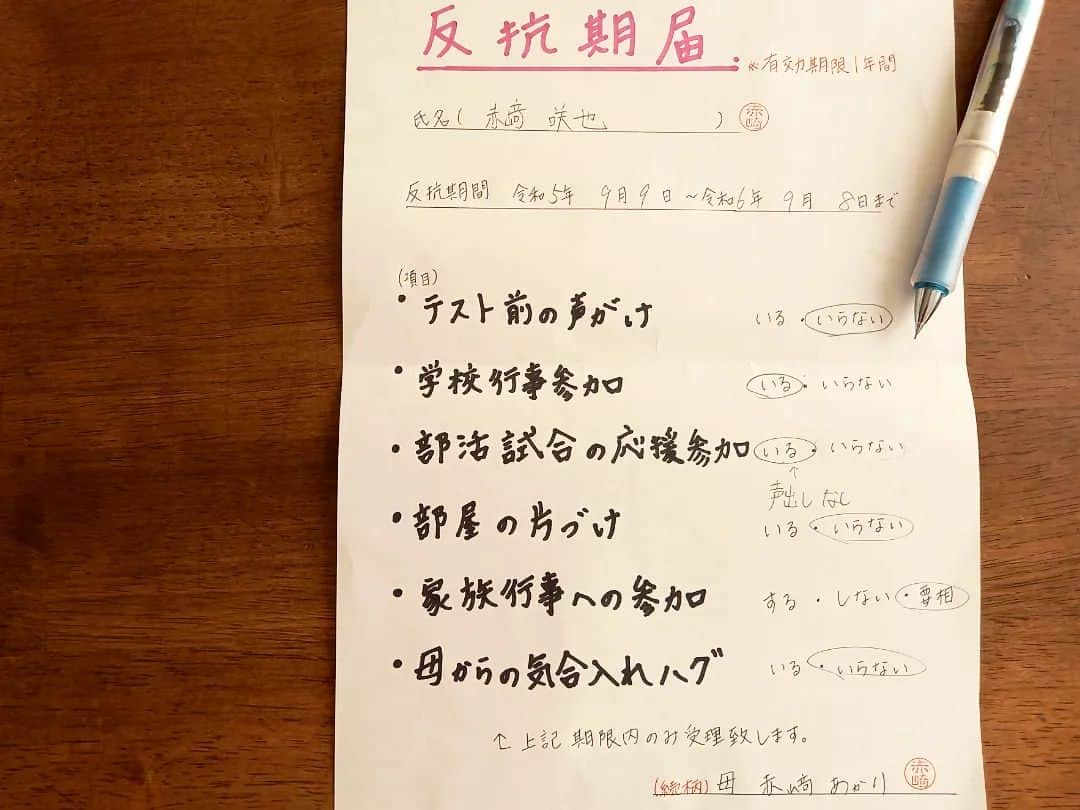 反抗期届
※有効期限1年間
氏名( 赤﨑 咲也 ) 赤﨑
反抗期間 令和5年 9月9日〜令和6年 9月 8日まで
(項目)
・テスト前の声がけ いる・いらない
・学校行事参加 いる・いらない
・部活試合の応援参加 いる・いらない
↑
声出しなし
・部屋の片づけ いる・いらない
・家族行事への参加 する・しない・要相
・母からの気合入れハグ いる・いらない
↑上記期限内のみ受理致します。
(続柄) 母 赤﨑 あかり 赤﨑